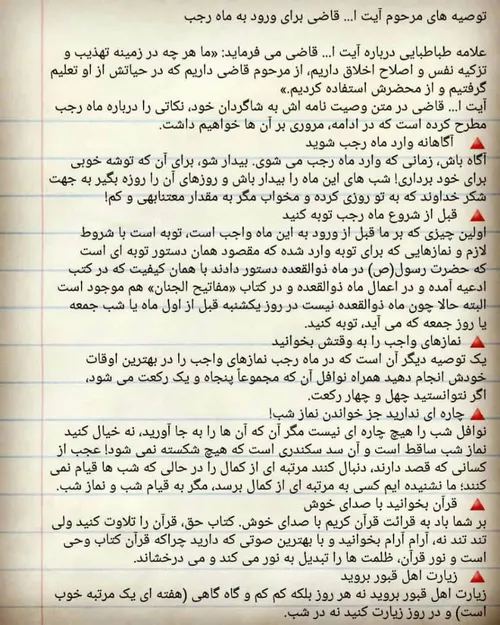 توصیه های مرحوم آیت ا... قاضی برای ورود به ماه رجب
علامه طباطبایی درباره آیت ا... قاضی می فرماید: «ما هر چه در زمینه تهذیب و
تزکیه نفس و اصلاح اخلاق داریم، از مرحوم قاضی داریم که در حیاتش از او تعلیم
گرفتیم و از محضرش استفاده کردیم.»
آیت ا... قاضی در متن وصیت نامه اش به شاگردان خود، نکاتی را درباره ماه رجب
مطرح کرده است که در ادامه، مروری بر آن ها خواهیم داشت.
🔺 آگاهانه وارد ماه رجب شوید
آگاه باش، زمانی که وارد ماه رجب می شوی. بیدار شو، برای آن که توشه خوبی
برای خود برداری! شب های این ماه را بیدار باش و روزهای آن را روزه بگیر به جهت
شکر خداوند که به تو روزی کرده و مخواب مگر به مقدار معتنابهی و کم!
🔺 قبل از شروع ماه رجب توبه کنید
اولین چیزی که بر ما قبل از ورود به این ماه واجب است، توبه است با شروط
لازم و نمازهایی که برای توبه وارد شده که مقصود همان دستور توبه ای است
که حضرت رسول(ص) در ماه ذوالقعده دستور دادند با همان کیفیت که در کتب
ادعیه آمده و در اعمال ماه ذوالقعده و در کتاب «مفاتیح الجنان» هم موجود است
البته حالا چون ماه ذوالقعده نیست در روز یکشنبه قبل از اول ماه یا شب جمعه
یا روز جمعه که می آید، توبه کنید.
🔺 نمازهای واجب را به وقتش بخوانید
یک توصیه دیگر آن است که در ماه رجب نمازهای واجب را در بهترین اوقات
خودش انجام دهید همراه نوافل آن که مجموعاً پنجاه و یک رکعت می شود،
اگر نتوانستید چهل و چهار رکعت.
🔺 چاره ای ندارید جز خواندن نماز شب!
نوافل شب را هیچ چاره ای نیست مگر آن که آن ها را به جا آورید، نه خیال کنید
نماز شب ساقط است و آن سد سکندری است که هیچ شکسته نمی شود! عجب از
کسانی که قصد دارند، دنبال کنند مرتبه ای از کمال را در حالی که شب ها قیام نمی
کنند؛ ما نشنیده ایم کسی به مرتبه ای از کمال برسد، مگر به قیام شب و نماز شب.
🔺 قرآن بخوانید با صدای خوش
بر شما باد به قرائت قرآن کریم با صدای خوش. کتاب حق، قرآن را تلاوت کنید ولی
تند تند نه، آرام آرام بخوانید و با بهترین صوتی که دارید چراکه قرآن کتاب وحی
است و نور قرآن، ظلمت ها را تبدیل به نور می کند و می درخشاند.
🔺 زیارت اهل قبور بروید
زیارت اهل قبور بروید نه هر روز بلکه کم کم و گاه گاهی (هفته ای یک مرتبه خوب
است) و در روز زیارت کنید نه در شب.